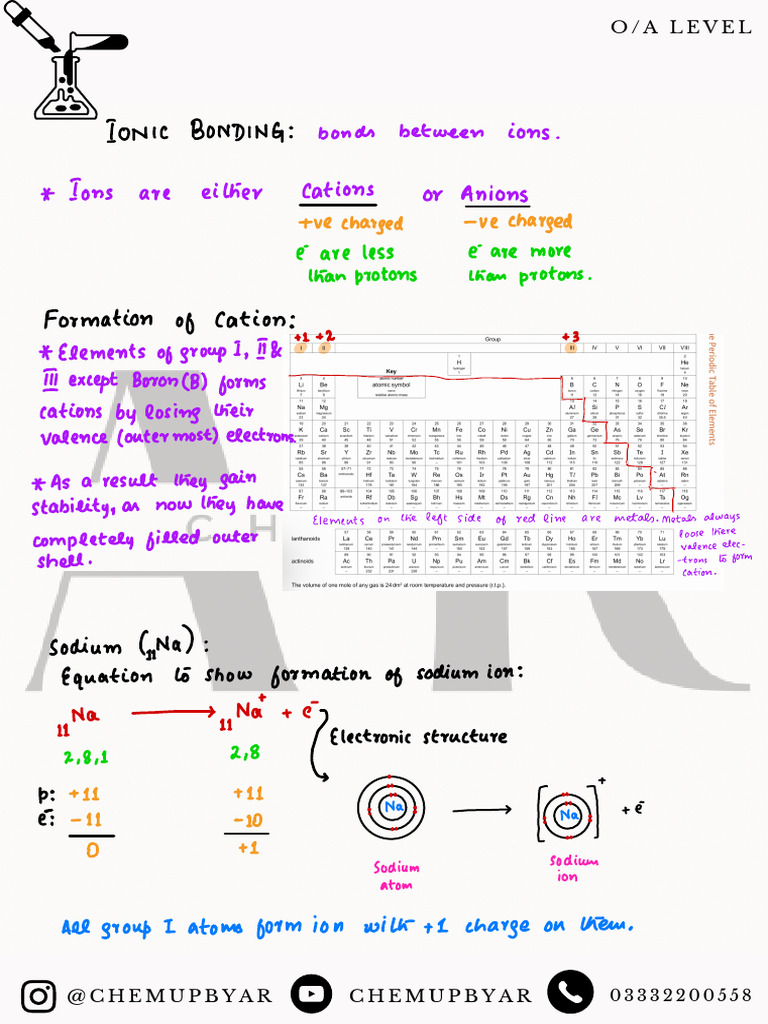 O/A LEVEL
IONIC BONDING: bonds between ions.
* Ions are either Cations or Anions
+ve charged -ve charged
e⁻ are less e⁻ are more
than protons than protons.
Formation of Cation:
* Elements of group I, II &
III except Boron (B) forms
cations by losing their
valence (outermost) electrons.
* As a result they gain
stability, as now they have
completely filled outer
shell.
+1 +2 +3
Group
I II III IV V VI VII VIII
Key
atomic number
atomic symbol
name
relative atomic mass
H
hydrogen
He
Li Be B C N O F Ne
Na Mg Al Si P S Cl Ar
K Ca Sc Ti V Cr Mn Fe Co Ni Cu Zn Ga Ge As Se Br Kr
Rb Sr Y Zr Nb Mo Tc Ru Rh Pd Ag Cd In Sn Sb Te I Xe
Cs Ba Hf Ta W Re Os Ir Pt Au Hg Tl Pb Bi Po At Rn
Fr Ra Rf Db Sg Bh Hs Mt Ds Rg Cn Nh Fl Mc Lv Ts Og
ie Periodic Table of Elements
Elements on the left side of red line are metals. Metals always
loose there
valence elec-
-trons to form
cation.
lanthanoids La Ce Pr Nd Pm Sm Eu Gd Tb Dy Ho Er Tm Yb Lu
actinoids Ac Th Pa U Np Pu Am Cm Bk Cf Es Fm Md No Lr
The volume of one mole of any gas is 24 dm³ at room temperature and pressure (r.t.p.).
C H
Sodium (₁₁Na):
Equation to show formation of sodium ion:
₁₁Na ⟶ ₁₁Na⁺ + e⁻
2,8,1 2,8
Electronic structure
p: +11 +11
e⁻: -11 -10
0 +1
Na Na + + e⁻
Sodium atom
sodium ion
All group I atoms form ion with +1 charge on them.
@CHEMUPBYAR CHEMUPBYAR 03332200558